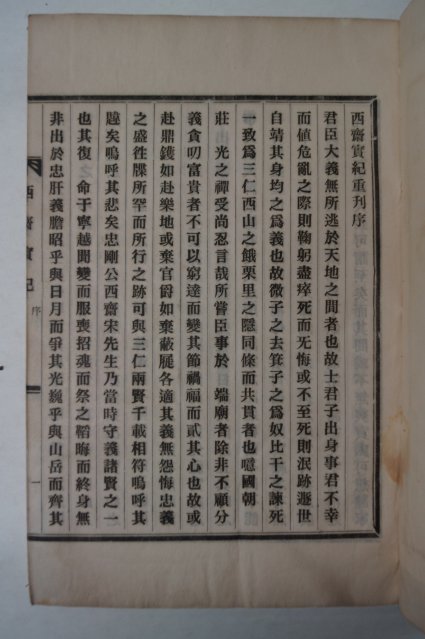 西齋實紀重刊序
君臣大義無所逃於天地之間者也故士君子出身事君不幸
而値危亂之際則鞠躬盡瘁死而无悔或不至死則泯跡遯世
自靖其身均之爲義也故微子之去箕子之爲奴比干之諫死
一致爲三仁西山之餓栗里之隱同條而共貫者也噫國朝
莊光之禪受尚忍言哉所嘗臣事於端廟者除非不顧分
義貪叨富貴者不可以窮達而變其節禍福而貳其心也故或
赴鼎鑊如赴樂地或棄官爵如棄蔽屣各適其義無怨悔忠義
之盛徃牒所罕而所行之跡可與三仁兩賢千載相符嗚呼其
韙矣嗚呼其悲矣忠剛公西齋宋先生乃當時守義諸賢之一
也其復命于寧越聞變而服喪招魂而祭之韜晦而終身無
非出於忠肝義膽昭乎與日月而爭其光巍乎與山岳而齊其
西齋實紀
序
一